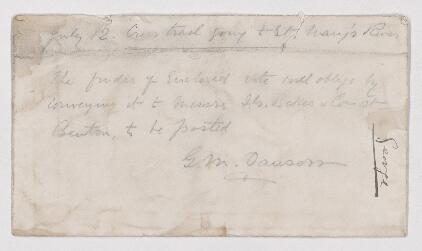 July 12. Cross trail going to St. Mary's River
The finder of Enclosed note will oblige by
conveying it to Messrs I.G. Baker & Co at
Benton, to be posted
G.M. Dawson
George